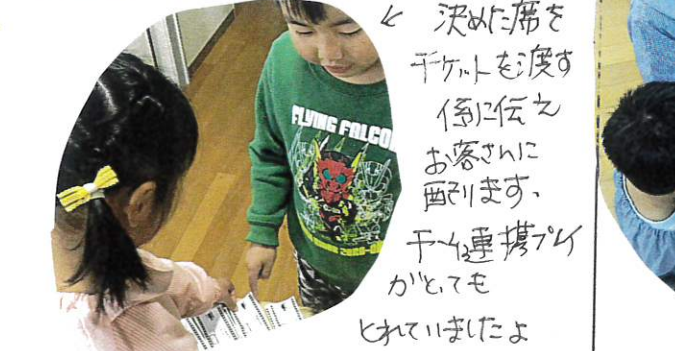 決めた席を
チケットを渡す
係に伝え
お客さんに
配ります、
チーム連携プレイ
がとっても
とれていましたよ
FLYING FALCO